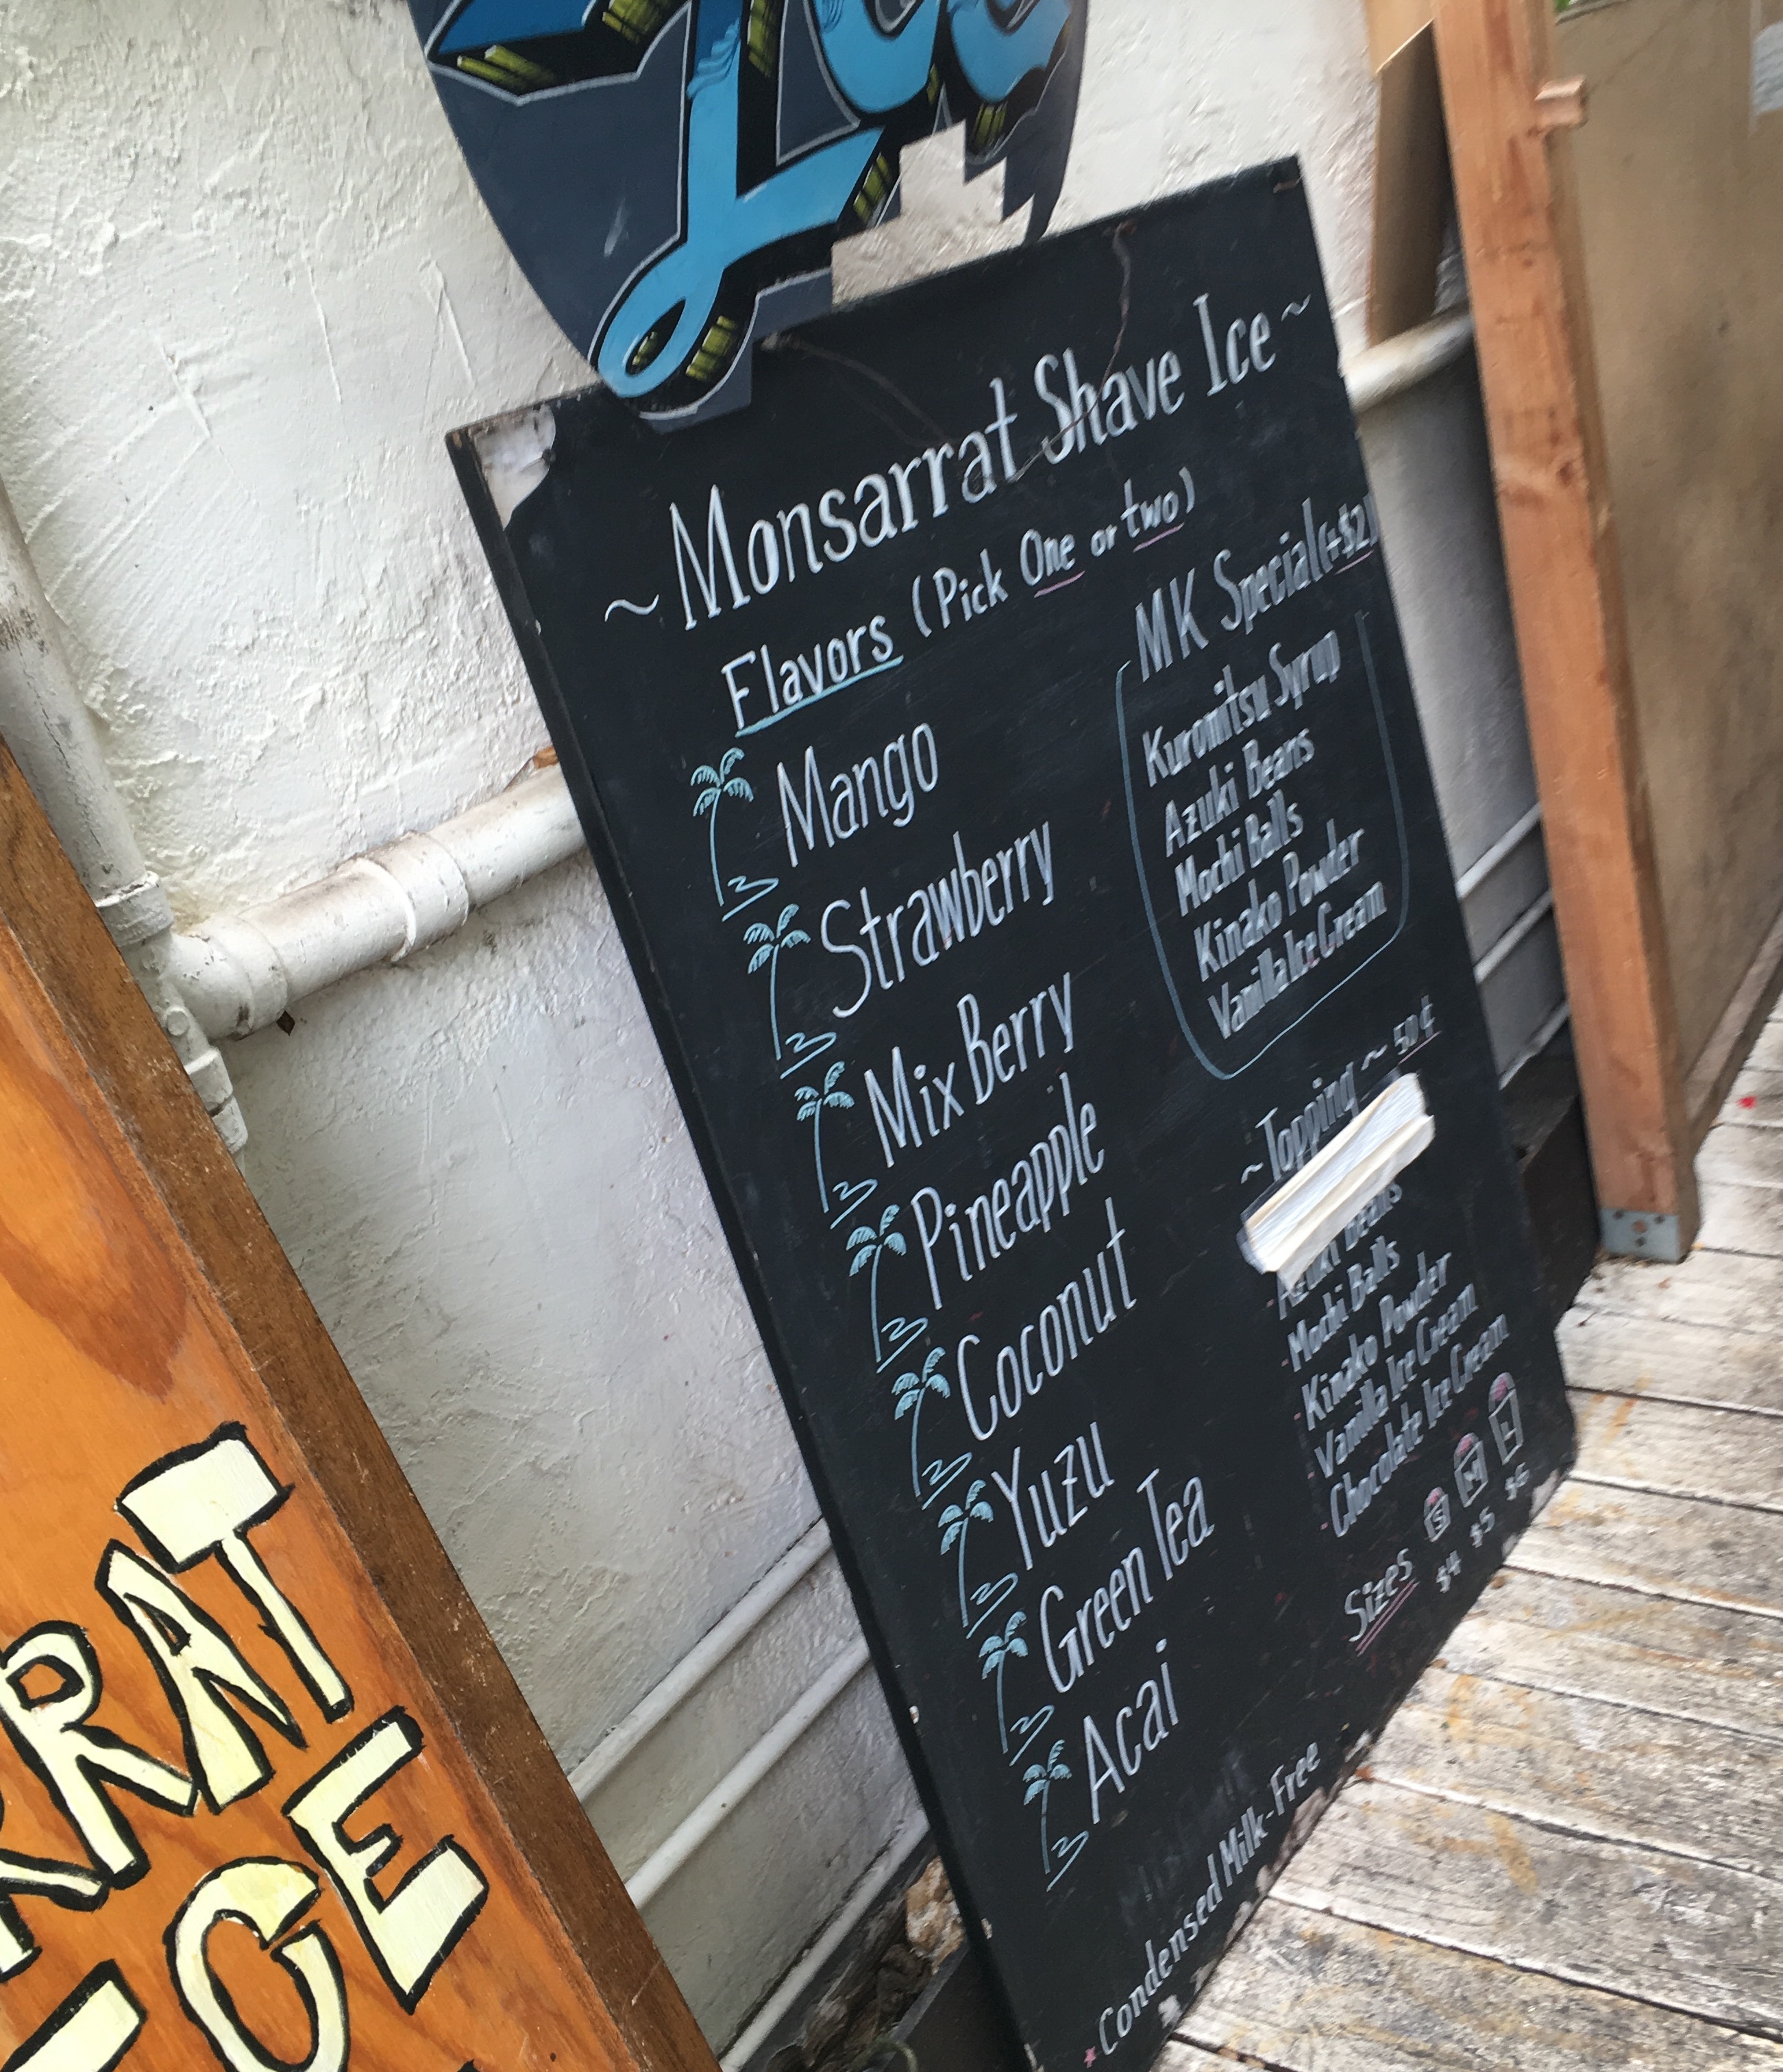 Ice
~ Monsarrat Shave Ice ~
Flavors (Pick One or two)
Mango
Strawberry
Mix Berry
Pineapple
Coconut
Yuzu
Green Tea
Acai
MK Special (+$2)
Kuromitsu Syrup
Azuki Beans
Mochi Balls
Kinako Powder
Vanilla Ice Cream
~Topping~ 50¢
Azuki Beans
Mochi Balls
Kinako Powder
Vanilla Ice Cream
Chocolate Ice Cream
Sizes S M L
$4 $5 $6
* Condensed Milk-Free
RRAT
ICE